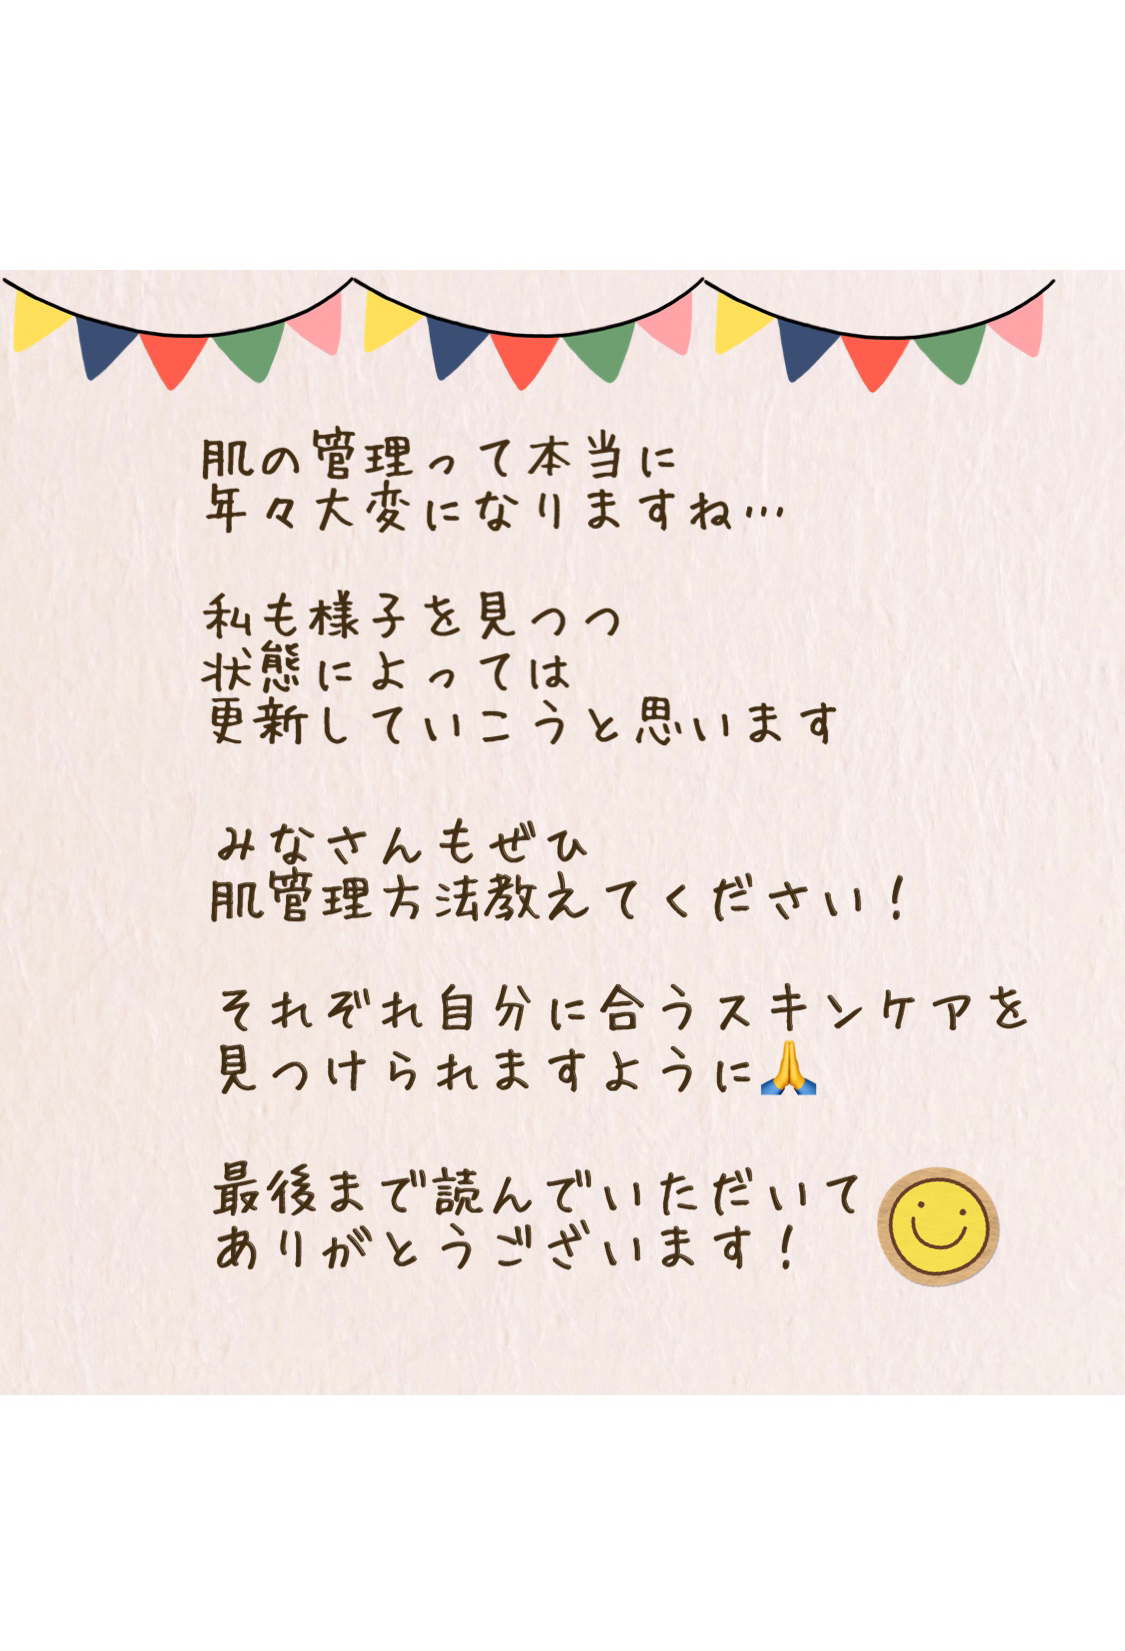 肌の管理って本当に
年々大変になりますね…
私も様子を見つつ
状態によっては
更新していこうと思います
みなさんもぜひ
肌管理方法教えてください！
それぞれ自分に合うスキンケアを
見つけられますように🙏
最後まで読んでいただいて
ありがとうございます！